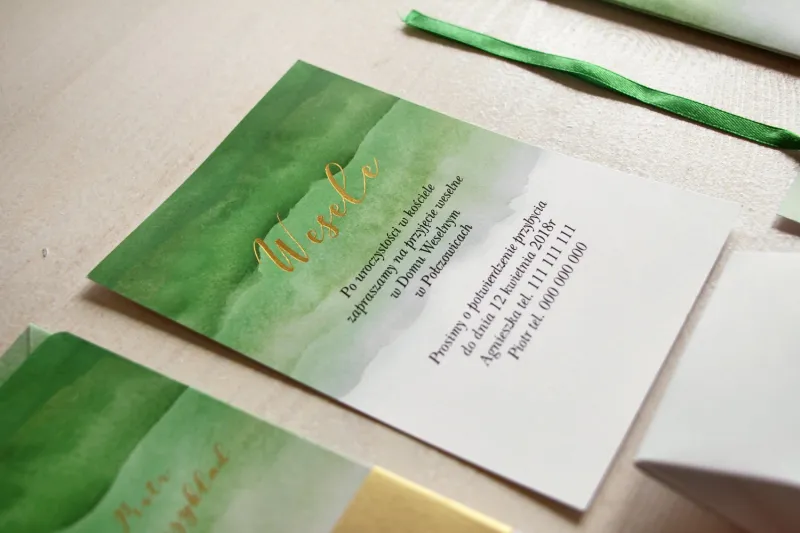 Wesele
Po uroczystości w kościele
zapraszamy na przyjęcie weselne
w Domu Weselnym
w Połczowicach
Prosimy o potwierdzenie przybycia
do dnia 12 kwietnia 2018r
Agnieszka tel. 111 111 111
Piotr tel. 000 000 000
Piotr